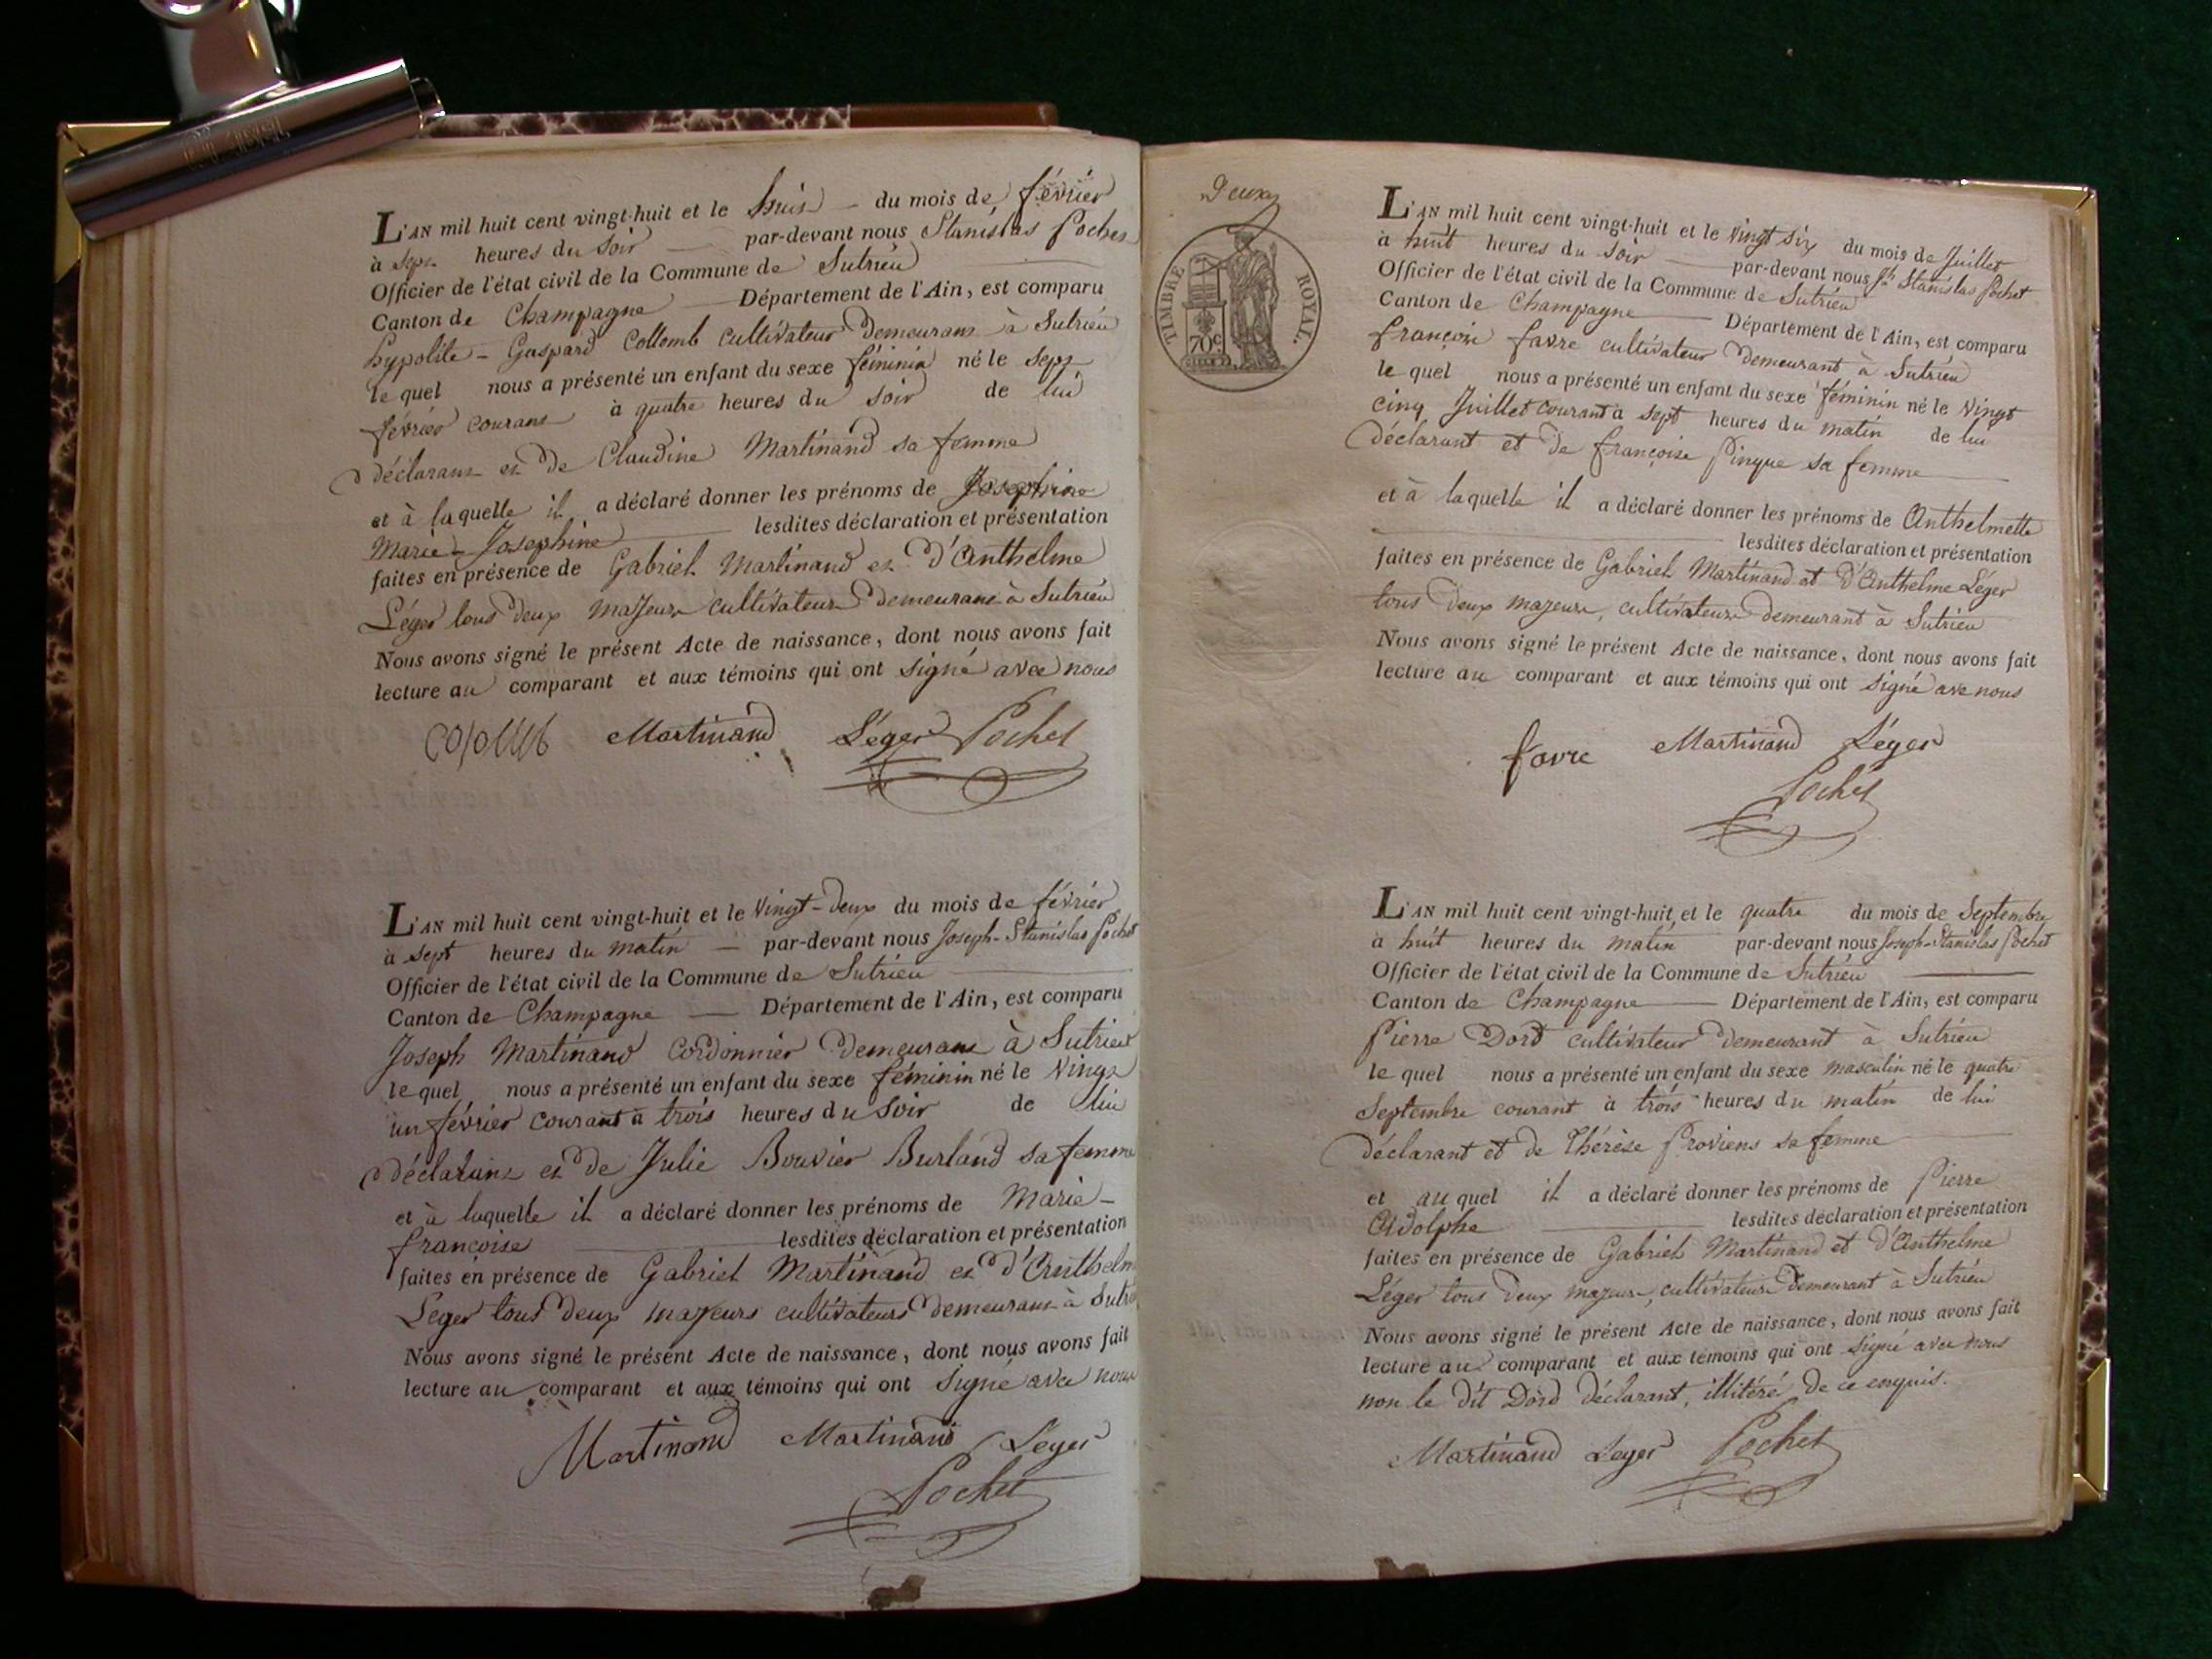 L'AN mil huit cent vingt-huit et le huit du mois de février
à sept heures du soir par-devant nous Stanislas Pochet
Officier de l'état civil de la Commune de Sutrieu
Canton de Champagne Département de l'Ain, est comparu
hypolite - Gaspard Collomb cultivateur demeurant à Sutrieu
le quel nous a présenté un enfant du sexe féminin né le sept
février courant à quatre heures du soir de lui
déclarant et de Claudine Martinand sa femme
et à laquelle il a déclaré donner les prénoms de Josephine
Marie - Josephine lesdites déclaration et présentation
faites en présence de Gabriel Martinand et d'Anthelme
Léger tous deux majeurs cultivateurs demeurant à Sutrieu
Nous avons signé le présent Acte de naissance, dont nous avons fait
lecture au comparant et aux témoins qui ont signé avec nous
Martinand Léger Pochet
L'AN mil huit cent vingt-huit et le vingt-deux du mois de février
à sept heures du matin par-devant nous Joseph-Stanislas Pochet
Officier de l'état civil de la Commune de Sutrieu
Canton de Champagne Département de l'Ain, est comparu
Joseph Martinand cordonnier demeurant à Sutrieu
le quel nous a présenté un enfant du sexe féminin né le vingt
un février courant à trois heures du soir de lui
déclarant et de Julie Bouvier Burland sa femme
et à laquelle il a déclaré donner les prénoms de Marie-
françoise lesdites déclaration et présentation
faites en présence de Gabriel Martinand et d'Anthelm
Léger tous deux majeurs cultivateurs demeurant à Sutri
Nous avons signé le présent Acte de naissance, dont nous avons fait
lecture au comparant et aux témoins qui ont signé avec nous
Martinand Martinand Léger
Pochet
Deux
TIMBRE ROYAL.
70c
L'AN mil huit cent vingt-huit et le vingt six du mois de Juillet
à huit heures du soir par-devant nous Jh Stanislas Pochet
Officier de l'état civil de la Commune de Sutrieu
Canton de Champagne Département de l'Ain, est comparu
françois favre cultivateur demeurant à Sutrieu
le quel nous a présenté un enfant du sexe féminin né le vingt
cinq Juillet courant à sept heures du matin de lui
déclarant et de françoise Pingue sa femme
et à laquelle il a déclaré donner les prénoms de Anthelmette
lesdites déclaration et présentation
faites en présence de Gabriel Martinand et d'Anthelme Léger
tous deux majeurs, cultivateurs demeurant à Sutrieu
Nous avons signé le présent Acte de naissance, dont nous avons fait
lecture au comparant et aux témoins qui ont signé ave nous
favre Martinand Léger
Pochet
L'AN mil huit cent vingt-huit et le quatre du mois de Septembre
à huit heures du matin par-devant nous Joseph-Stanislas Pochet
Officier de l'état civil de la Commune de Sutrieu
Canton de Champagne Département de l'Ain, est comparu
Pierre Dord cultivateur demeurant à Sutrieu
le quel nous a présenté un enfant du sexe masculin né le quatre
Septembre courant à trois heures du matin de lui
déclarant et de Thérèse Proviens sa femme
et au quel il a déclaré donner les prénoms de Pierre
Adolphe lesdites déclaration et présentation
faites en présence de Gabriel Martinand et d'Anthelme
Léger tous deux majeurs, cultivateurs demeurant à Sutrieu
Nous avons signé le présent Acte de naissance, dont nous avons fait
lecture au comparant et aux témoins qui ont signé avec nous
non le dit Dord déclarant, illitéré de ce enquis.
Martinand Leger Pochet